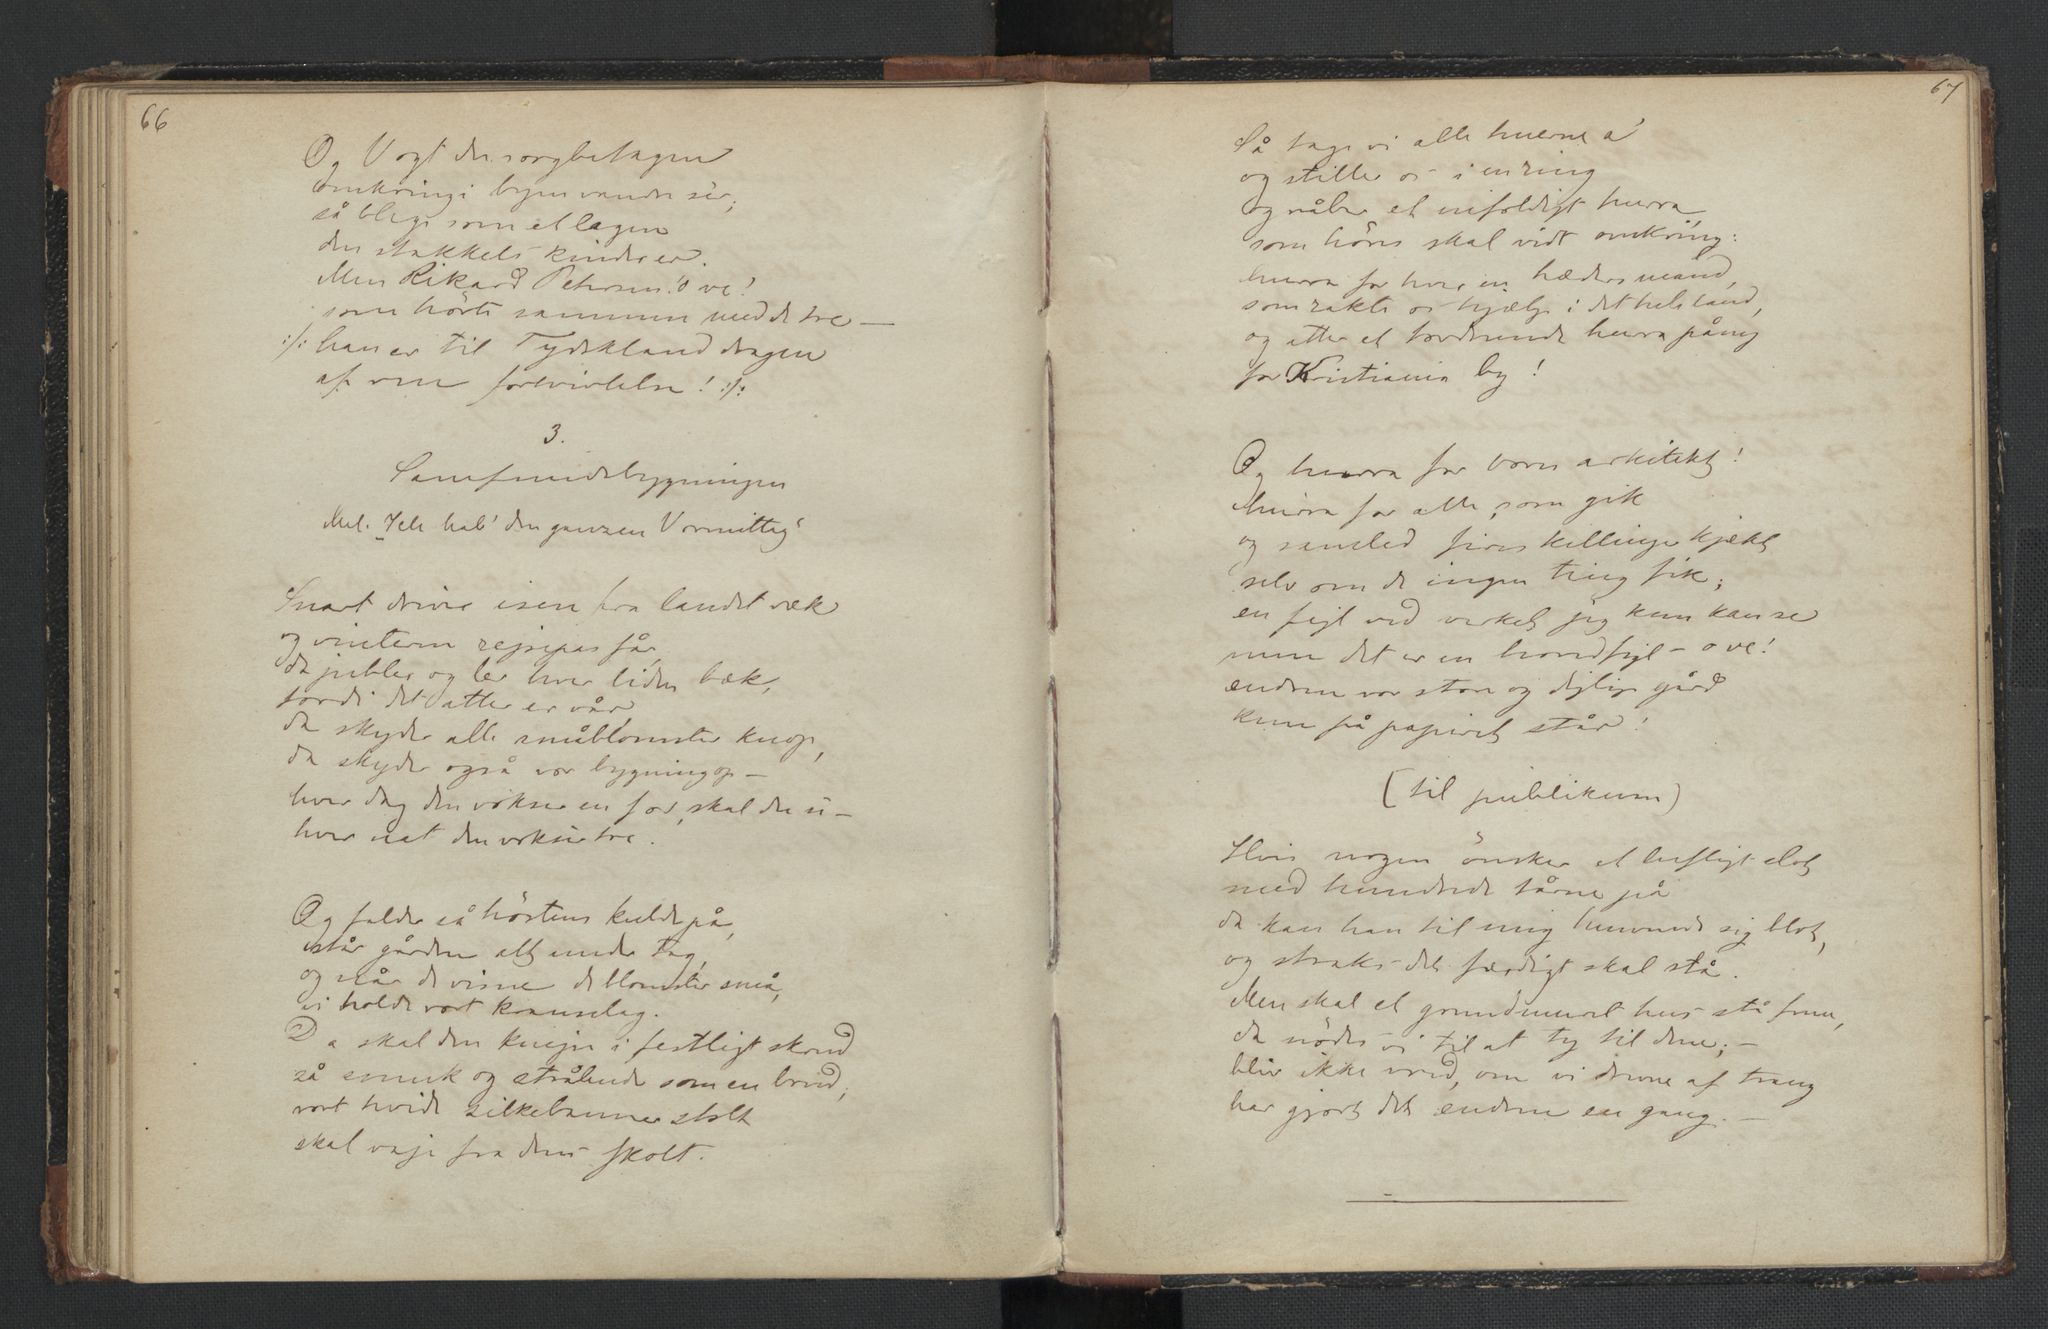 66
Og Vogt den sorgbetagen
omkring i byen vandre sér;
så blege som et lagen
den stakkels kinder er.
Men Rikard Petersen! o ve!
som hörte sammen med de tre —
:/: han er til Tydskland dragen
af ren fortvivlelse! :/:
3.
Samfundsbygningen
Mel. Ich hab' den ganzen Vormittag
Snart drive isen fra landet væk
og vinteren rejsepas får,
da jubler og ler hver liden bæk,
fordi det atter er vår
da skyder alle småblomster knop,
da skyder også vor bygning op —
hver dag den vokser en fod, skal de si —
hver nat den vokser tre.
Og falder så höstens kulde på,
står gården alt under tag,
og når de visne de blomster små,
vi holde vort kranselag.
Da skal den knejse i festligt skrud
så smuk og strålende som en brud;
vort hvide silkebanner stolt
skal vaje fra dens skolt.
67
Så tage vi alle huerne a'
og stiller os i en ring
og råber et enfoldigt hurra,
som höres skal vidt omkring:
hurra for hver en hædersmand,
som rakte os hjælp i det hele land,
og atter et tordnende hurra påny
for Kristiania by!
Og hurra for vores arkitekt!
Hurra for alle, som gik
og samled fireskillinge kjækt
selv om de ingen ting fik;
en fejl ved verket jeg kun kan se
men det er en hovedfejl — o ve!
endnu vor store og dejlige gård
kun på papiret står!
(til publikum)
Hvis nogen önsker et luftigt slot
med hundrede tårne på
da kan han til mig henvende sig blot,
og straks det færdigt skal stå.
Men skal et grundmuret hus stå frem,
da nödes vi til at ty til dem; —
bliv ikke vred, om vi drevne af trang
har gjort det endnu en gang. —